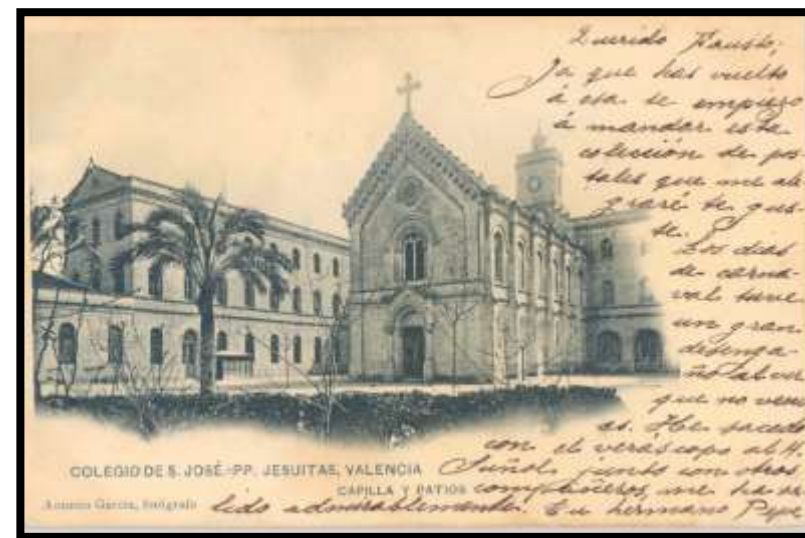 Querido Fausto;
Ya que has vuelto
á esa te empiezo
á mandar esta
colección de pos-
tales que me ale-
graré te gus-
te.
Los dias
de carna-
val tuve
un gran
desenga-
ño al ver
que no veni
as. He sacado
con el veráscopo al H.
Suñol junto con otros
compañeros, me ha sa
lido admirablemente. Tu hermano Pepe
COLEGIO DE S. JOSÉ.-PP. JESUITAS, VALENCIA
CAPILLA Y PATIOS
Antonio García, fotógrafo